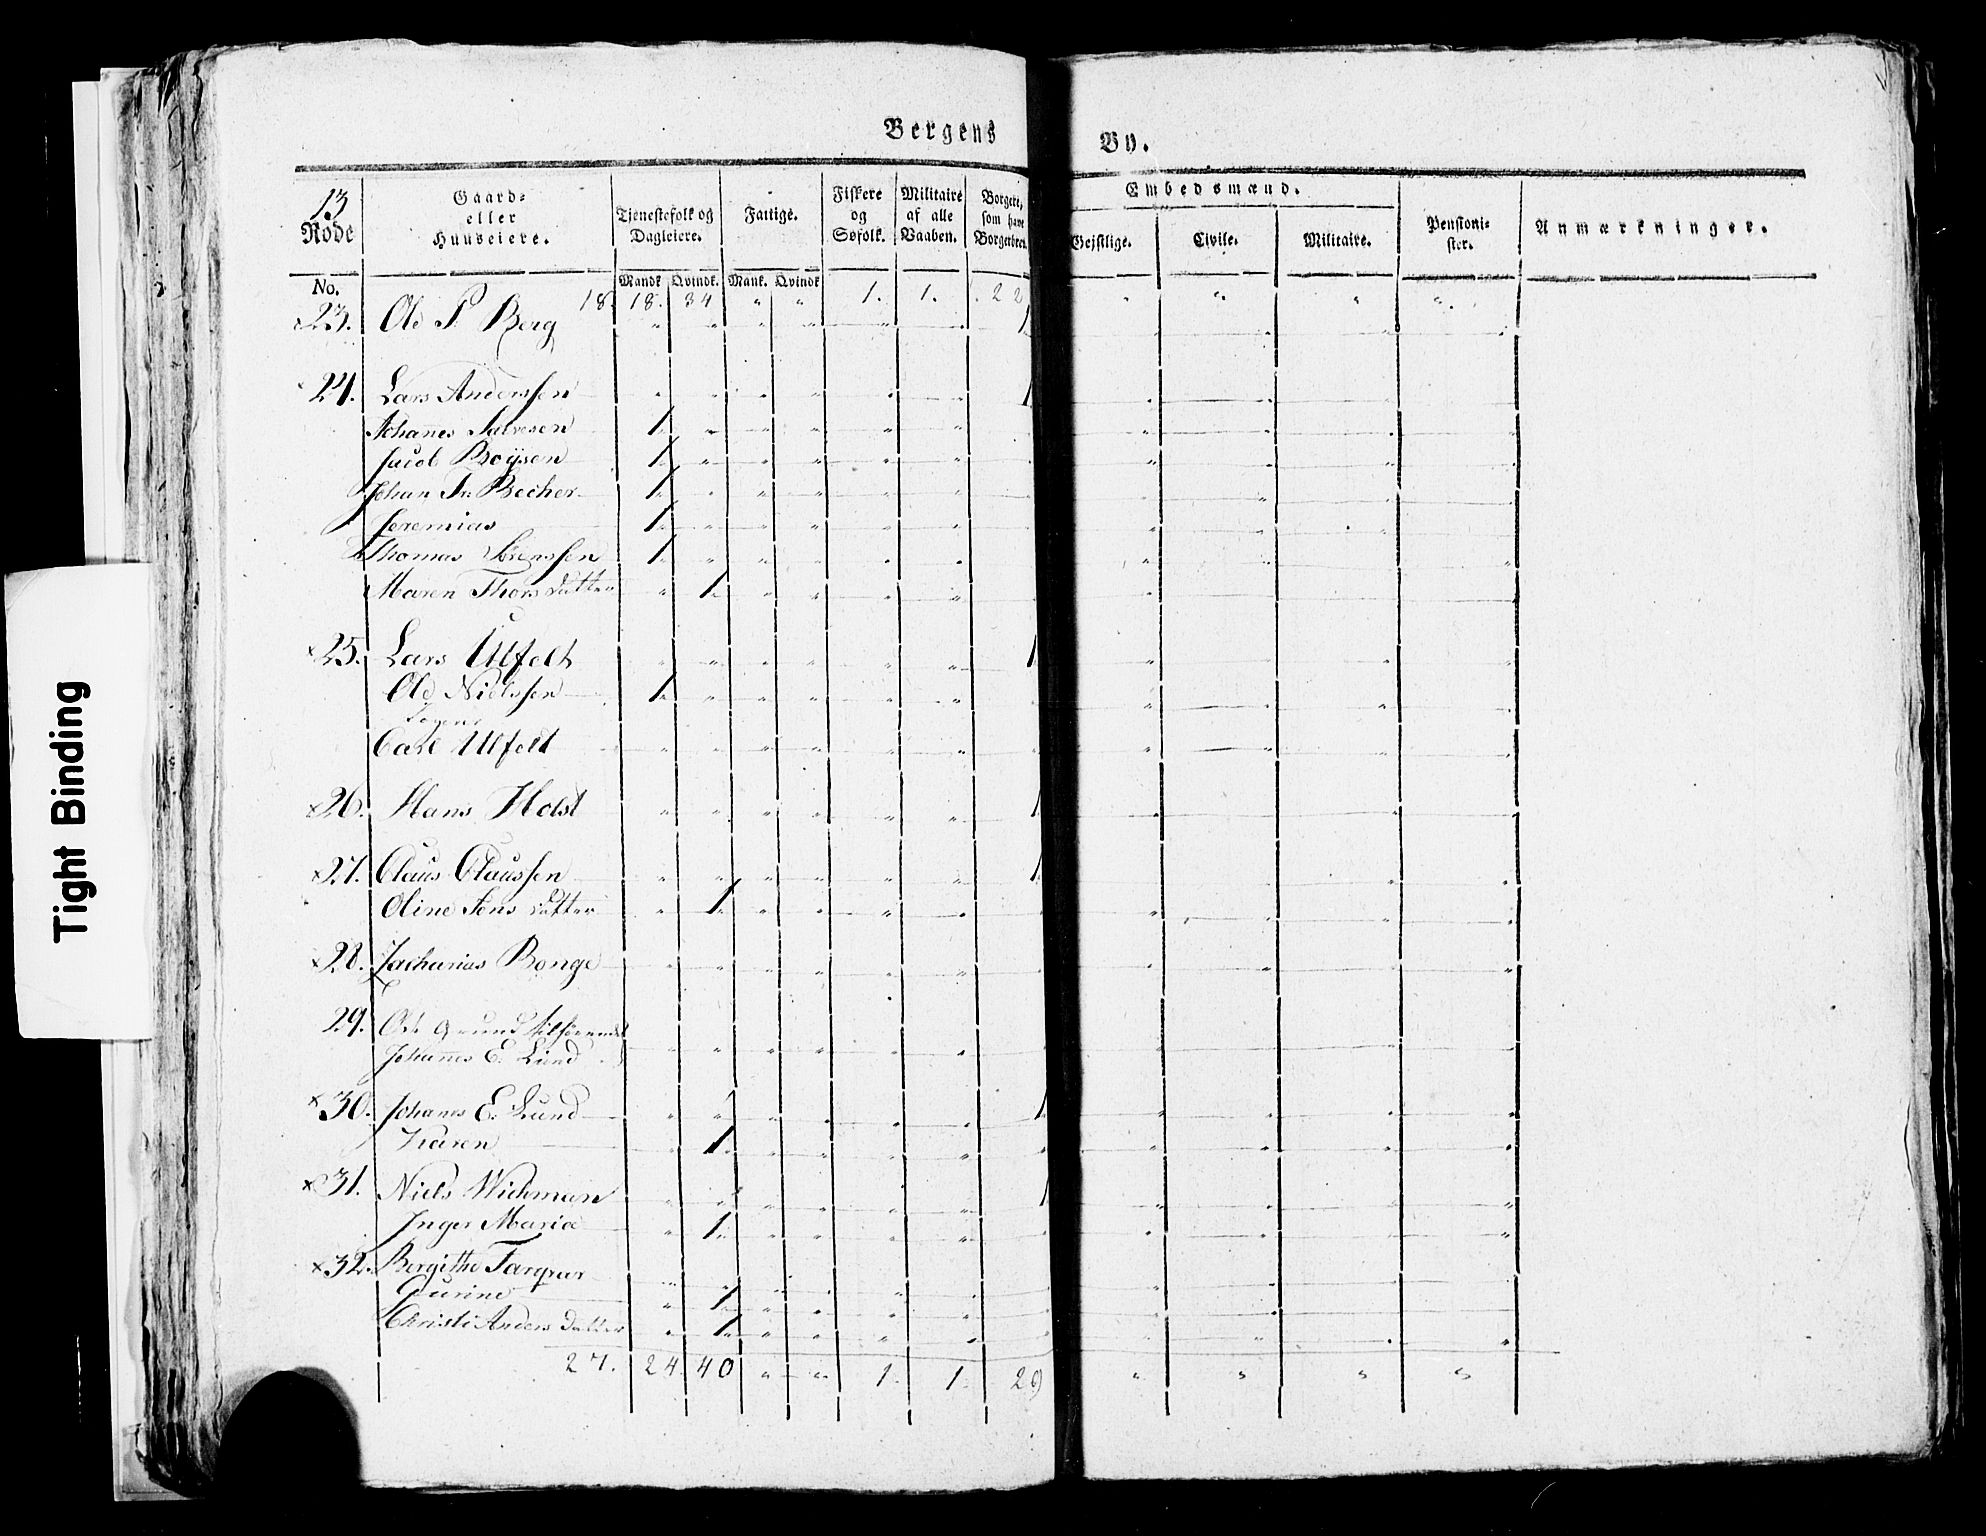 Bergens By.
13 Rode
Gaard- eller Huuseiere.
Tjenestefolk og Dagleiere.
Fattige.
Fiskere og Søfolk.
Militaire af alle Vaaben.
Borgere, som have Borgerbrev
Embedsmænd.
Gejstlige.
Civile.
Militaire.
Pensionister.
Anmærkninger.
No.
Mandk Qvindk. Mank. Qvindk
18. 18. 34 " " 1. 1. 22 " " " "
23. Ole P. Berg 1
24. Lars Anderssen 1
Johanes Salvesen 1
Jacob Boÿsen 1
Johan Fr. Becher 1
Jeremias 1
Thomas Sørenssen 1
Maren Thorsdatter 1
25. Lars Ulfelt 1
Ole Nielssen 1
Carl Ulfelt
26. Hans Holst 1
27. Claus Claussen 1
Oline Jens datter 1
28. Zacharias Bonge
29. grund tilhørende
Johannes E. Lund
30. Johanes E. Lund 1
Karen 1
31. Niels Wichman 1
Inger Maria 1
32. Bergithe Farquar
Gurine 1
Christi Anders Datter 1
27. 24 40 " " 1. 1. 29 " " " "
Tight Binding